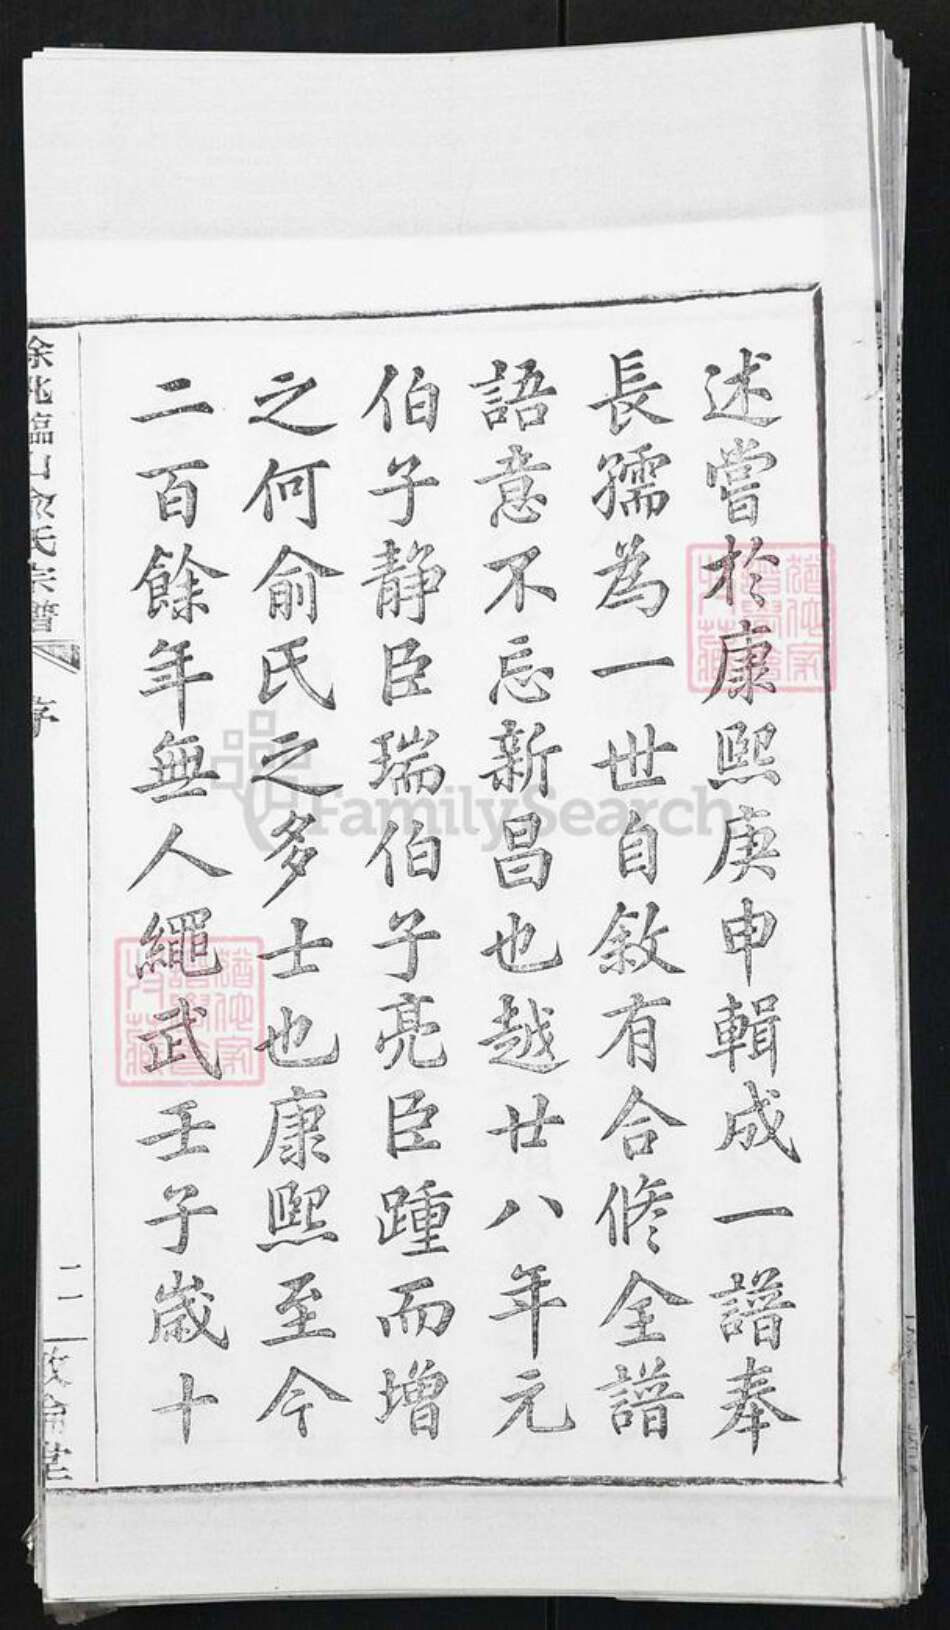 述嘗於康熙庚申輯成一譜奉
長孺為一世自敘有合修全譜
語意不忘新昌也越廿八年元
伯子靜臣瑞伯子亮臣踵而增
之何俞氏之多士也康熙至今
二百餘年無人繩武壬子歲十
餘姚臨山俞氏宗譜
序
二
敦倫堂
FamilySearch